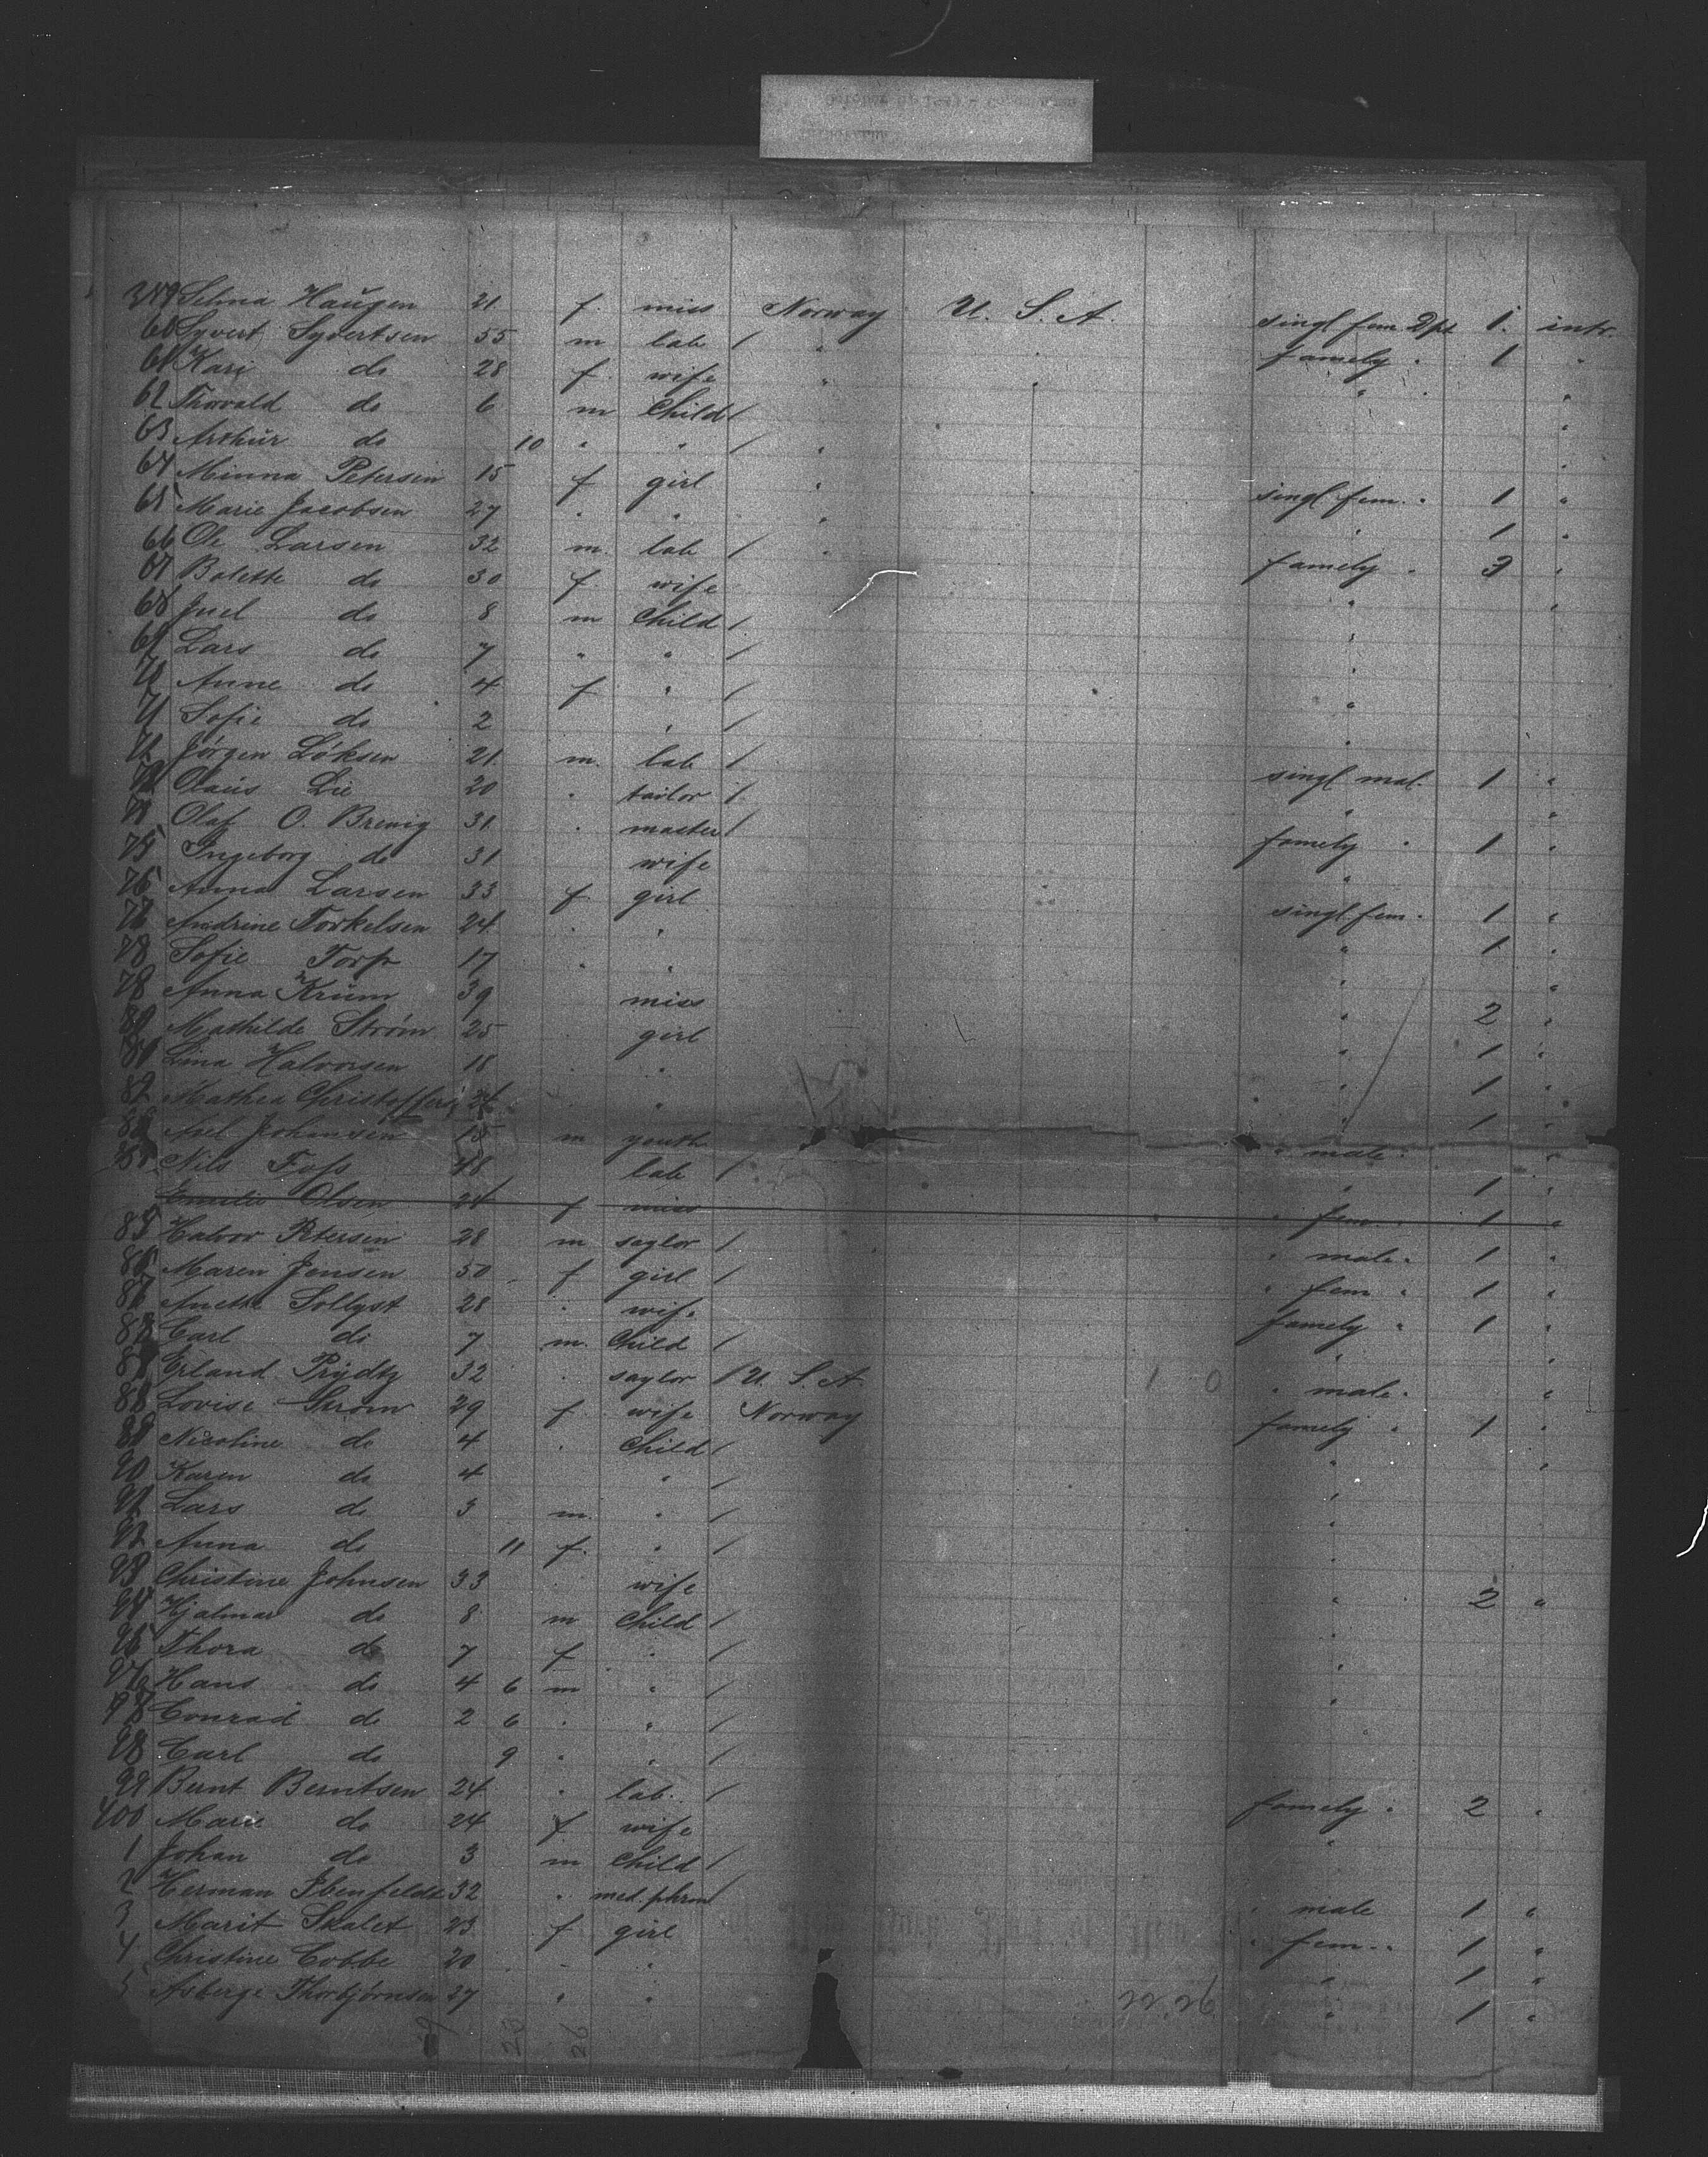 Selma Haugen 21 f. miss Norway U. S. A. singl fem. 2pt 1. intr.
60 Syvert Sydertsen 55 m lab / " " famely " 1 "
61 Kari do 28 f. wife " " " "
62 Thorvald do 6 m Child / "
63 Arthur do 10 " " / " "
64 Minna Petersen 15 f girl " singl fem. " 1 "
65 Marie Jacobsen 27 " " " " 1 "
66 Ole Larsen 32 m. lab / " famely " 3 "
67 Bolette do 30 f. wife " "
68 Juel do 8 m Child / "
69 Lars do 7 " " / "
70 Anne do 4 f " / "
71 Sofie do 2 " / "
72 Jörgen Löksen 21. m. lab / singl mal. 1 "
Olaüs Lie 20 " tailor / " "
Olaf O. Brenig 31. " master / famely " 1 "
75 Ingeborg do 31 wife "
76 Anna Larsen 33 f girl singl. fem. " 1 "
77 Andrine Torkelsen 24. " " " 1 "
78 Sofie Torp 17 " " " "
78 Anna Krüm 39 miss " 2 "
80 Mathilde Ström 25 " girl " 1 "
81 Lina Halvorsen 18 " " " 1 "
82 Mathea Christoffers " " " 1 "
Axel Johansen 15 m youth " male " "
Nils Foss 48 lab / " 1 "
Emilie Olsen 24 f miss " fem " 1 "
85 Halvor Petersen 28 m saylor / " male " 1 "
86 Maren Jensen 50 f girl / " fem " 1 "
87 Anette Sollyst 28 " wife famely " 1 "
88 Carl do 7 m. Child / " "
Erland Prÿdtz 32 " saylor / U. S. A. 1 0 " male " "
88 Lovise Strom 29 f. wife Norway famely " 1 "
89 Nicoline do 4 " Child / " "
90 Karen do 4 " / "
91 Lars do 3 m. " / "
92 Anna do 11 f. " / "
93 Christine Johnsen 33 " wife " 2 "
94 Hjalmar do 8 m Child / "
95 Thora do 7 f " / "
Hans do 4 6 m " / "
Conrad do 2 6 " " / "
98 Carl do 9 " " /
99 Bernt Berntsen 24 " lab. / famely " 2 "
400 Marie do 24 f wife "
1 Johan do 3 m Child /
2 Herman Ibenfeldt 32 " med. phrm / " male 1 "
3 Marit Skalet 23 f girl " fem. " 1 "
4 Christine Cobbe 20 " " " 1 "
5 Asberge Thorbjörnsen 27 " " " 1 "